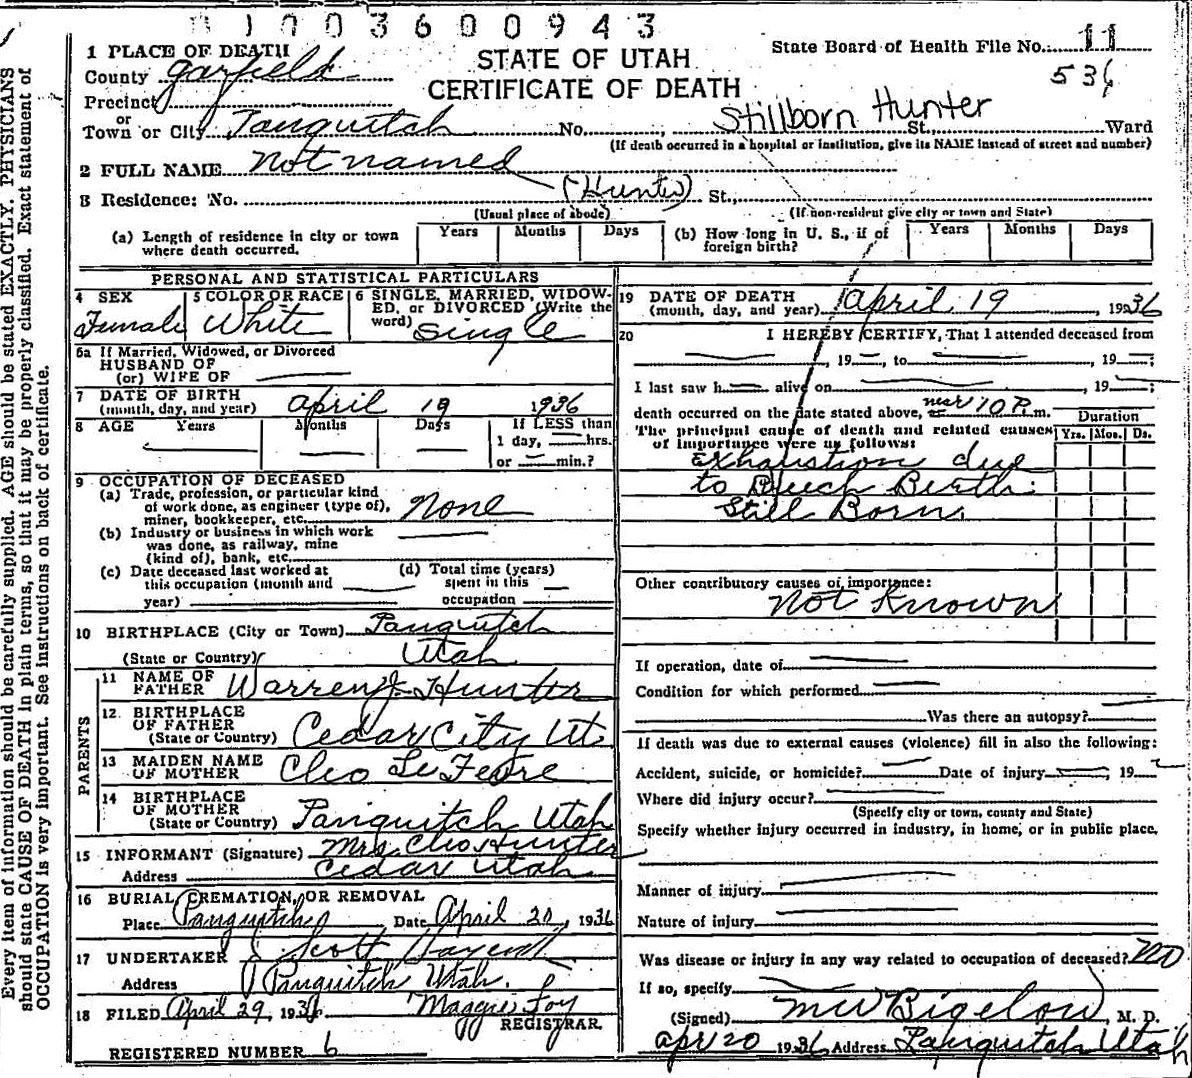 1003600943
1 PLACE OF DEATH
STATE OF UTAH
State Board of Health File No. 11
County Garfield
CERTIFICATE OF DEATH
536
Precinct
or
Town or City Panguitch No. Stillborn Hunter St., Ward
(If death occurred in a hospital or institution, give its NAME instead of street and number)
2 FULL NAME Not named
(Hunter)
3 Residence: No. St.,
(Usual place of abode) (If non-resident give city or town and State)
(a) Length of residence in city or town where death occurred. Years Months Days (b) How long in U. S., if of foreign birth? Years Months Days
PERSONAL AND STATISTICAL PARTICULARS
4 SEX Female
5 COLOR OR RACE White
6 SINGLE, MARRIED, WIDOWED, OR DIVORCED (Write the word) Single
6a If Married, Widowed, or Divorced
HUSBAND OF
(or) WIFE OF
7 DATE OF BIRTH
(month, day, and year) April 19 1936
8 AGE Years Months Days If LESS than
1 day, hrs.
or min.?
9 OCCUPATION OF DECEASED
(a) Trade, profession, or particular kind
of work done, as engineer (type of),
miner, bookkeeper, etc. None
(b) Industry or business in which work
was done, as railway, mine
(kind of), bank, etc.
(c) Date deceased last worked at
this occupation (month and
year)
(d) Total time (years)
spent in this
occupation
10 BIRTHPLACE (City or Town) Panguitch
(State or Country) Utah
PARENTS
11 NAME OF
FATHER Warren J. Hunter
12. BIRTHPLACE
OF FATHER
(State or Country) Cedar City Ut.
13 MAIDEN NAME
OF MOTHER Cleo Le Fevre
14 BIRTHPLACE
OF MOTHER
(State or Country) Panguitch Utah
15 INFORMANT (Signature) Mrs. Cleo Hunter
Address Cedar Utah
16 BURIAL, CREMATION, OR REMOVAL
Place Panguitch Date April 20, 1936
17 UNDERTAKER Scott
Address Panguitch Utah.
18 FILED April 29, 1936 Maggie Foy
REGISTRAR.
REGISTERED NUMBER 6
19 DATE OF DEATH
(month, day, and year) April 19 1936
20 I HEREBY CERTIFY, That I attended deceased from
, 19 , to , 19 ;
I last saw h alive on , 19 ;
death occurred on the date stated above, near 10 P. m.
The principal cause of death and related causes
of importance were as follows:
Duration
Yrs. Mos. Ds.
Exhaustion due
to Breech Birth.
Still Born.
Other contributory causes of importance:
Not Known
If operation, date of
Condition for which performed
Was there an autopsy?
If death was due to external causes (violence) fill in also the following:
Accident, suicide, or homicide? Date of injury , 19
Where did injury occur?
(Specify city or town, county and State)
Specify whether injury occurred in industry, in home, or in public place.
Manner of injury
Nature of injury
Was disease or injury in any way related to occupation of deceased? No
If so, specify
(Signed) M W Bigelow, M. D.
Apr 20 1936 Address Panguitch Utah
Every item of information should be carefully supplied. AGE should be stated EXACTLY. PHYSICIANS
should state CAUSE OF DEATH in plain terms, so that it may be properly classified. Exact statement of
OCCUPATION is very important. See instructions on back of certificate.